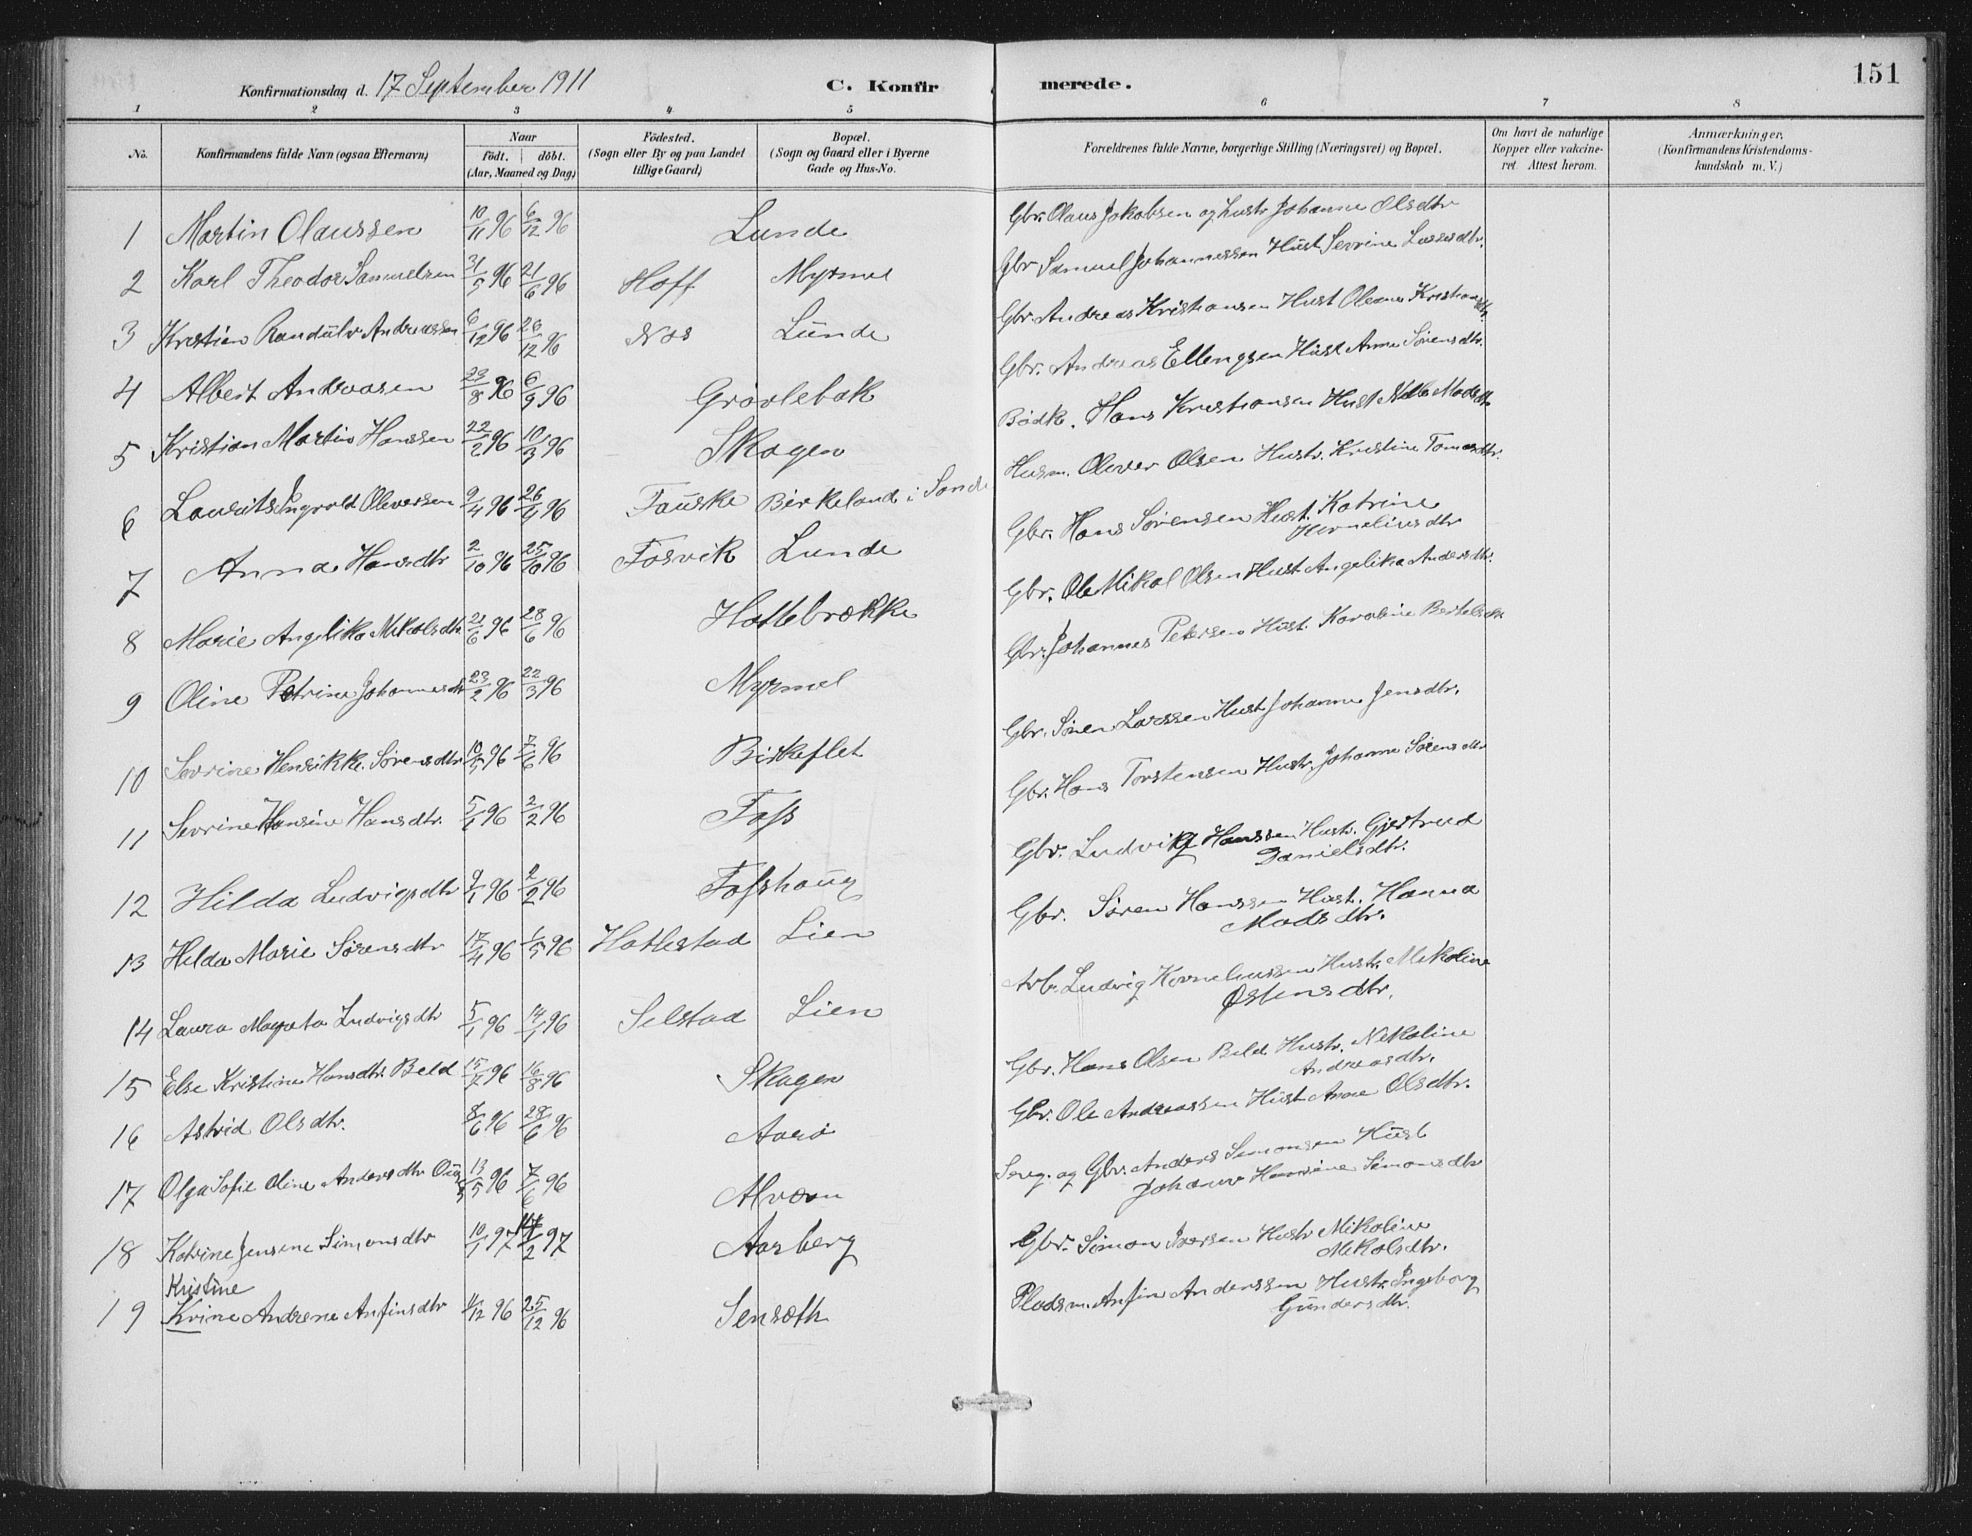 Konfirmationsdag d. 17 September 1911 C. Konfirmerede. 151
1 2 3 4 5 6 7 8
No. Konfirmandens fulde Navn (ogsaa Efternavn) Naar født. døbt. (Aar, Maaned og Dag) Fødested. (Sogn eller By og paa Landet tillige Gaard) Bopæl. (Sogn og Gaard eller i Byerne Gade og Hus-No. Forældrenes fulde Navne, borgerlige Stilling (Næringsvei) og Bopæl. Om havt de naturlige Kopper eller vakcineret Attest herom. Anmærkninger, (Konfirmandens Kristendomskundskab m. V.)
1 Martin Olaussen 10/11 96 6/12 96 Lunde Gbr. Olaus Jakobsen og hustr Johanne Olsdtr
2 Karl Theodor Samuelsen 31/5 96 21/6 96 Hoff Myrmel Gbr Samuel Johannessen Hust Sevrine Lassesdtr.
3 Kristian Randulv Andreassen 6/12 96 26/12 96 Nos Lunde Gbr. Andreas Kristiansen Hust Oleane Kristiansdtr.
4 Albert Andreasen 23/8 96 6/9 96 Grovlebak Gbr. Andreas Ellengsen Hust Anne Sørensdtr.
5 Kristian Martin Hanssen 22/2 96 10/3 96 Skogen Bødk. Hans Kristiansen Hust Madsdtr
6 Laurits Ingvald Oliversen 9/4 96 26/4 96 Fauske Birkeland i Sande Husm. Oliver Olsen Hustr. Kristine Tomasdtr.
7 Anna Hansdtr 2/10 96 25/10 96 Fosvik Lunde Gbr. Hans Sørensen Hust. Katrine Korneliusdtr
8 Marie Angelika Mikalsdtr 21/6 96 28/6 96 Hatlebrække Gbr. Ole Mikal Olsen Hust Angelika Andersdtr.
9 Oline Petrine Johannesdtr 23/2 96 22/3 96 Myrmel Gbr. Johannes Petersen Hust. Karoline Bertelsdtr
10 Sevrine Henrikke Sørensdtr 10/5 96 7/6 96 Birkeflet Gbr. Søren Larssen Hust Johanne Jensdtr.
11 Sevrine Hansine Hansdtr. 5/1 96 2/2 96 Foss Gbr. Hans Torstensen Hustr. Johanne Sørensdtr
12 Hilda Ludvigsdtr 9/1 96 2/2 96 Fosshaug Gbr. Ludvig Hanssen Hustr. Gjertrud Danielsdtr.
13 Hilda Marie Sørensdtr 17/4 96 1/5 96 Hatlestad Lien Gbr. Søren Hanssen Hust. Hanna Madsdtr.
14 Laura Ludvigsdtr 5/1 96 14/1 96 Selstad Lien Arb. Ludvig Korneliussen Hustr. Mikoline Østensdtr.
15 Else Kristine Hansdtr. Beld 15/7 96 16/8 96 Skogen Gbr. Hans Olsen Beld Hustr. Nikoline Andreasdtr.
16 Astrid Olsdtr. 8/6 96 28/6 96 Aarø Gbr. Ole Andreassen Hust Anne Olsdtr.
17 Olga Sofie Oline Andersdtr 13/5 96 7/6 96 Alværn og Gbr. Anders Simonsen Hust Johanne Hansine Simonsdtr
18 Katrine Jensene Simonsdtr 10/1 97 14/2 97 Aarberg Gbr. Simon Iversen Hustr Mikoline Mikalsdtr.
Kristine
19 Krine Andrene Anfinsdtr 4/12 96 25/12 96 Sensæth Pladsm. Anfin Anderssen Hustr. Ingeborg Gundersdtr.